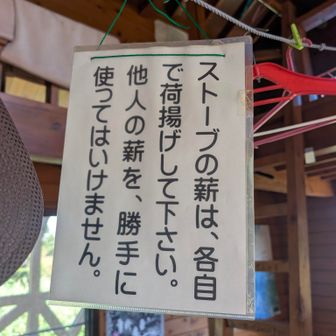 ストーブの薪は、各自
で荷揚げして下さい。
他人の薪を、勝手に
使ってはいけません。